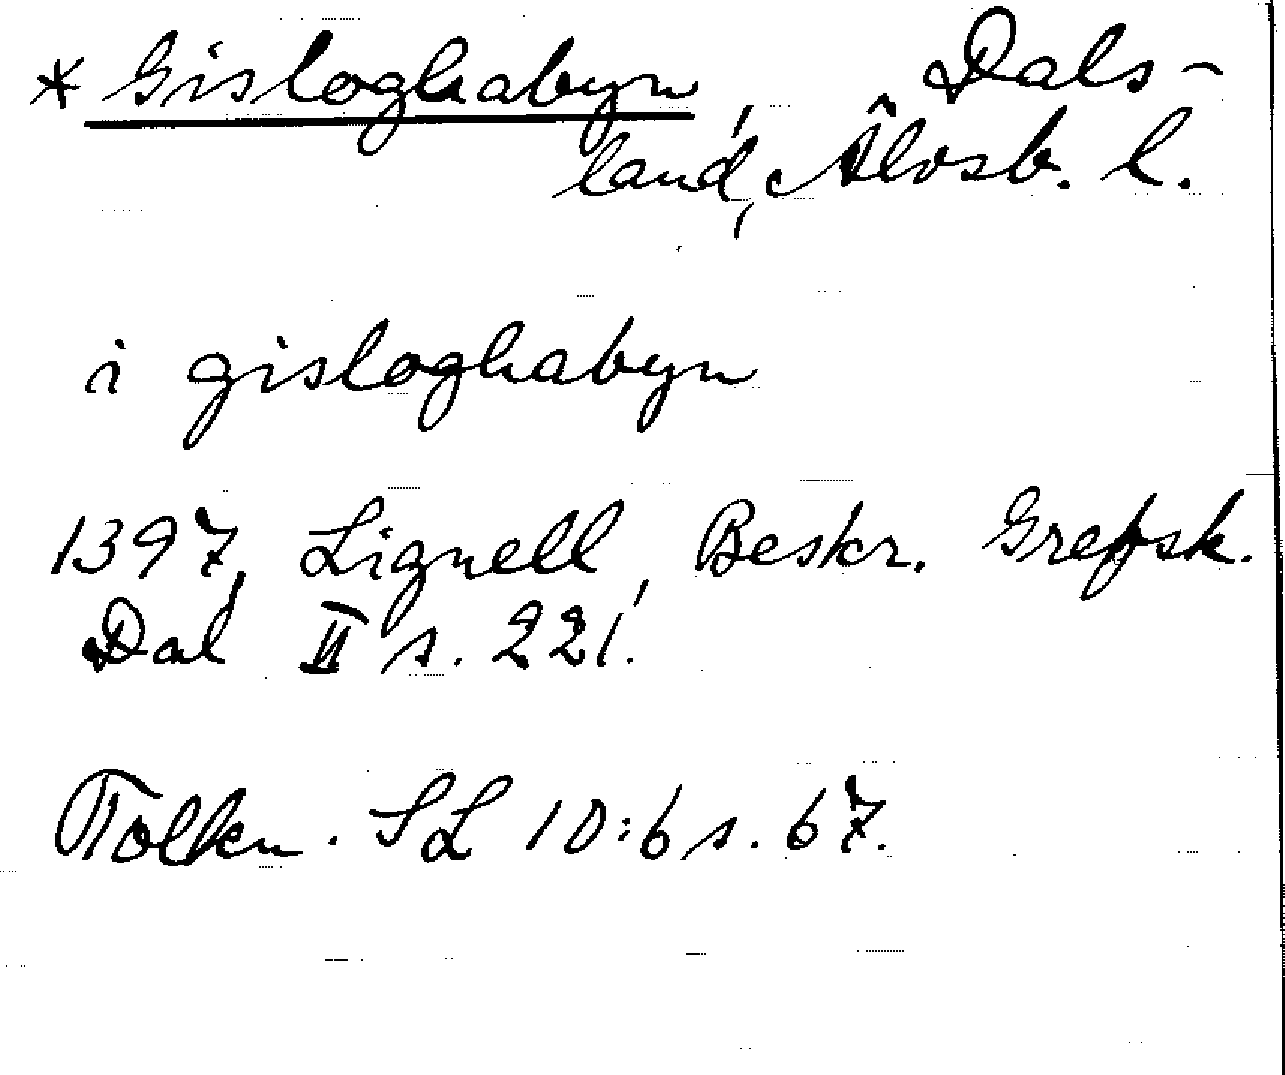 * Gisloghabyn, Dals-
land, Älvsb. l.
i gisloghabyn
1397, Lignell, Beskr. Grefsk.
Dal II s. 221.
Tolkn. SL 10:6 s. 67.